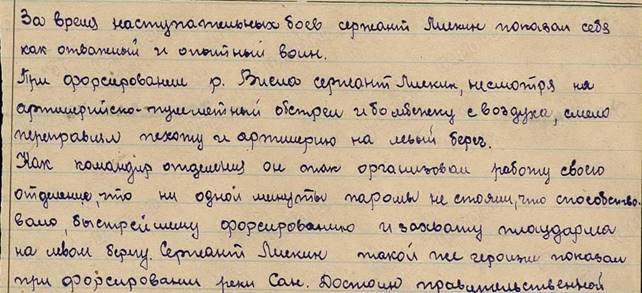 За время наступательных боев сержант Пискин показал себя
как отважный и опытный воин.
При форсировании р. Висла сержант Пискин, несмотря на
артиллерийско-пулеметный обстрел и бомбежку с воздуха, смело
переправлял пехоту и артиллерию на левый берег.
Как командир отделения он так организовал работу своего
отделение, что ни одной минуты паромы не стояли, что способство-
вало, быстрейшему форсированию и захвату плацдарма
на левом берегу. Сержант Пискин такой же героизм показал
при форсировании реки Сан. Достоин правительственной